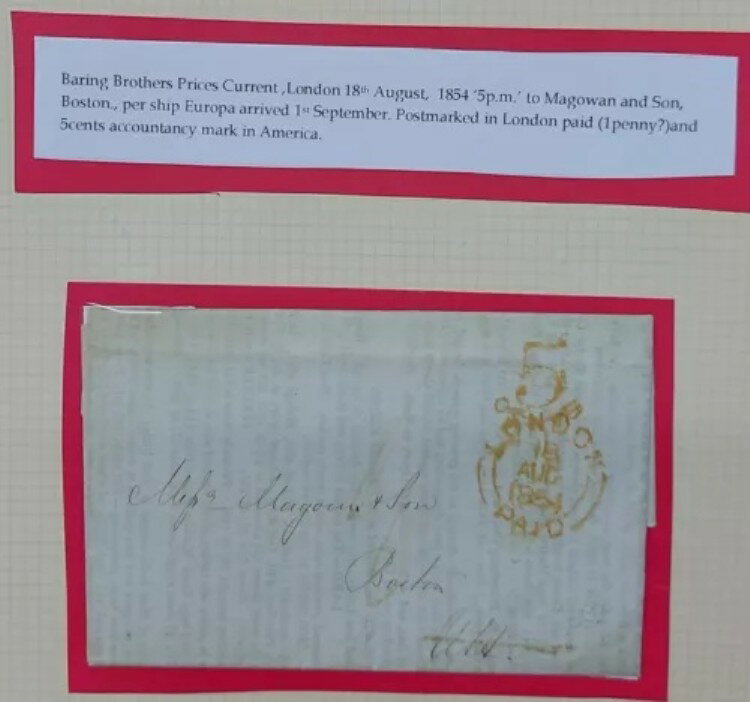 Baring Brothers Prices Current ,London 18th August, 1854 '5p.m.' to Magowan and Son,
Boston., per ship Europa arrived 1st September. Postmarked in London paid (1penny?)and
5cents accountancy mark in America.
5
LONDON
18
AUG
1854
PAID
Messrs Magoun & Son
Boston